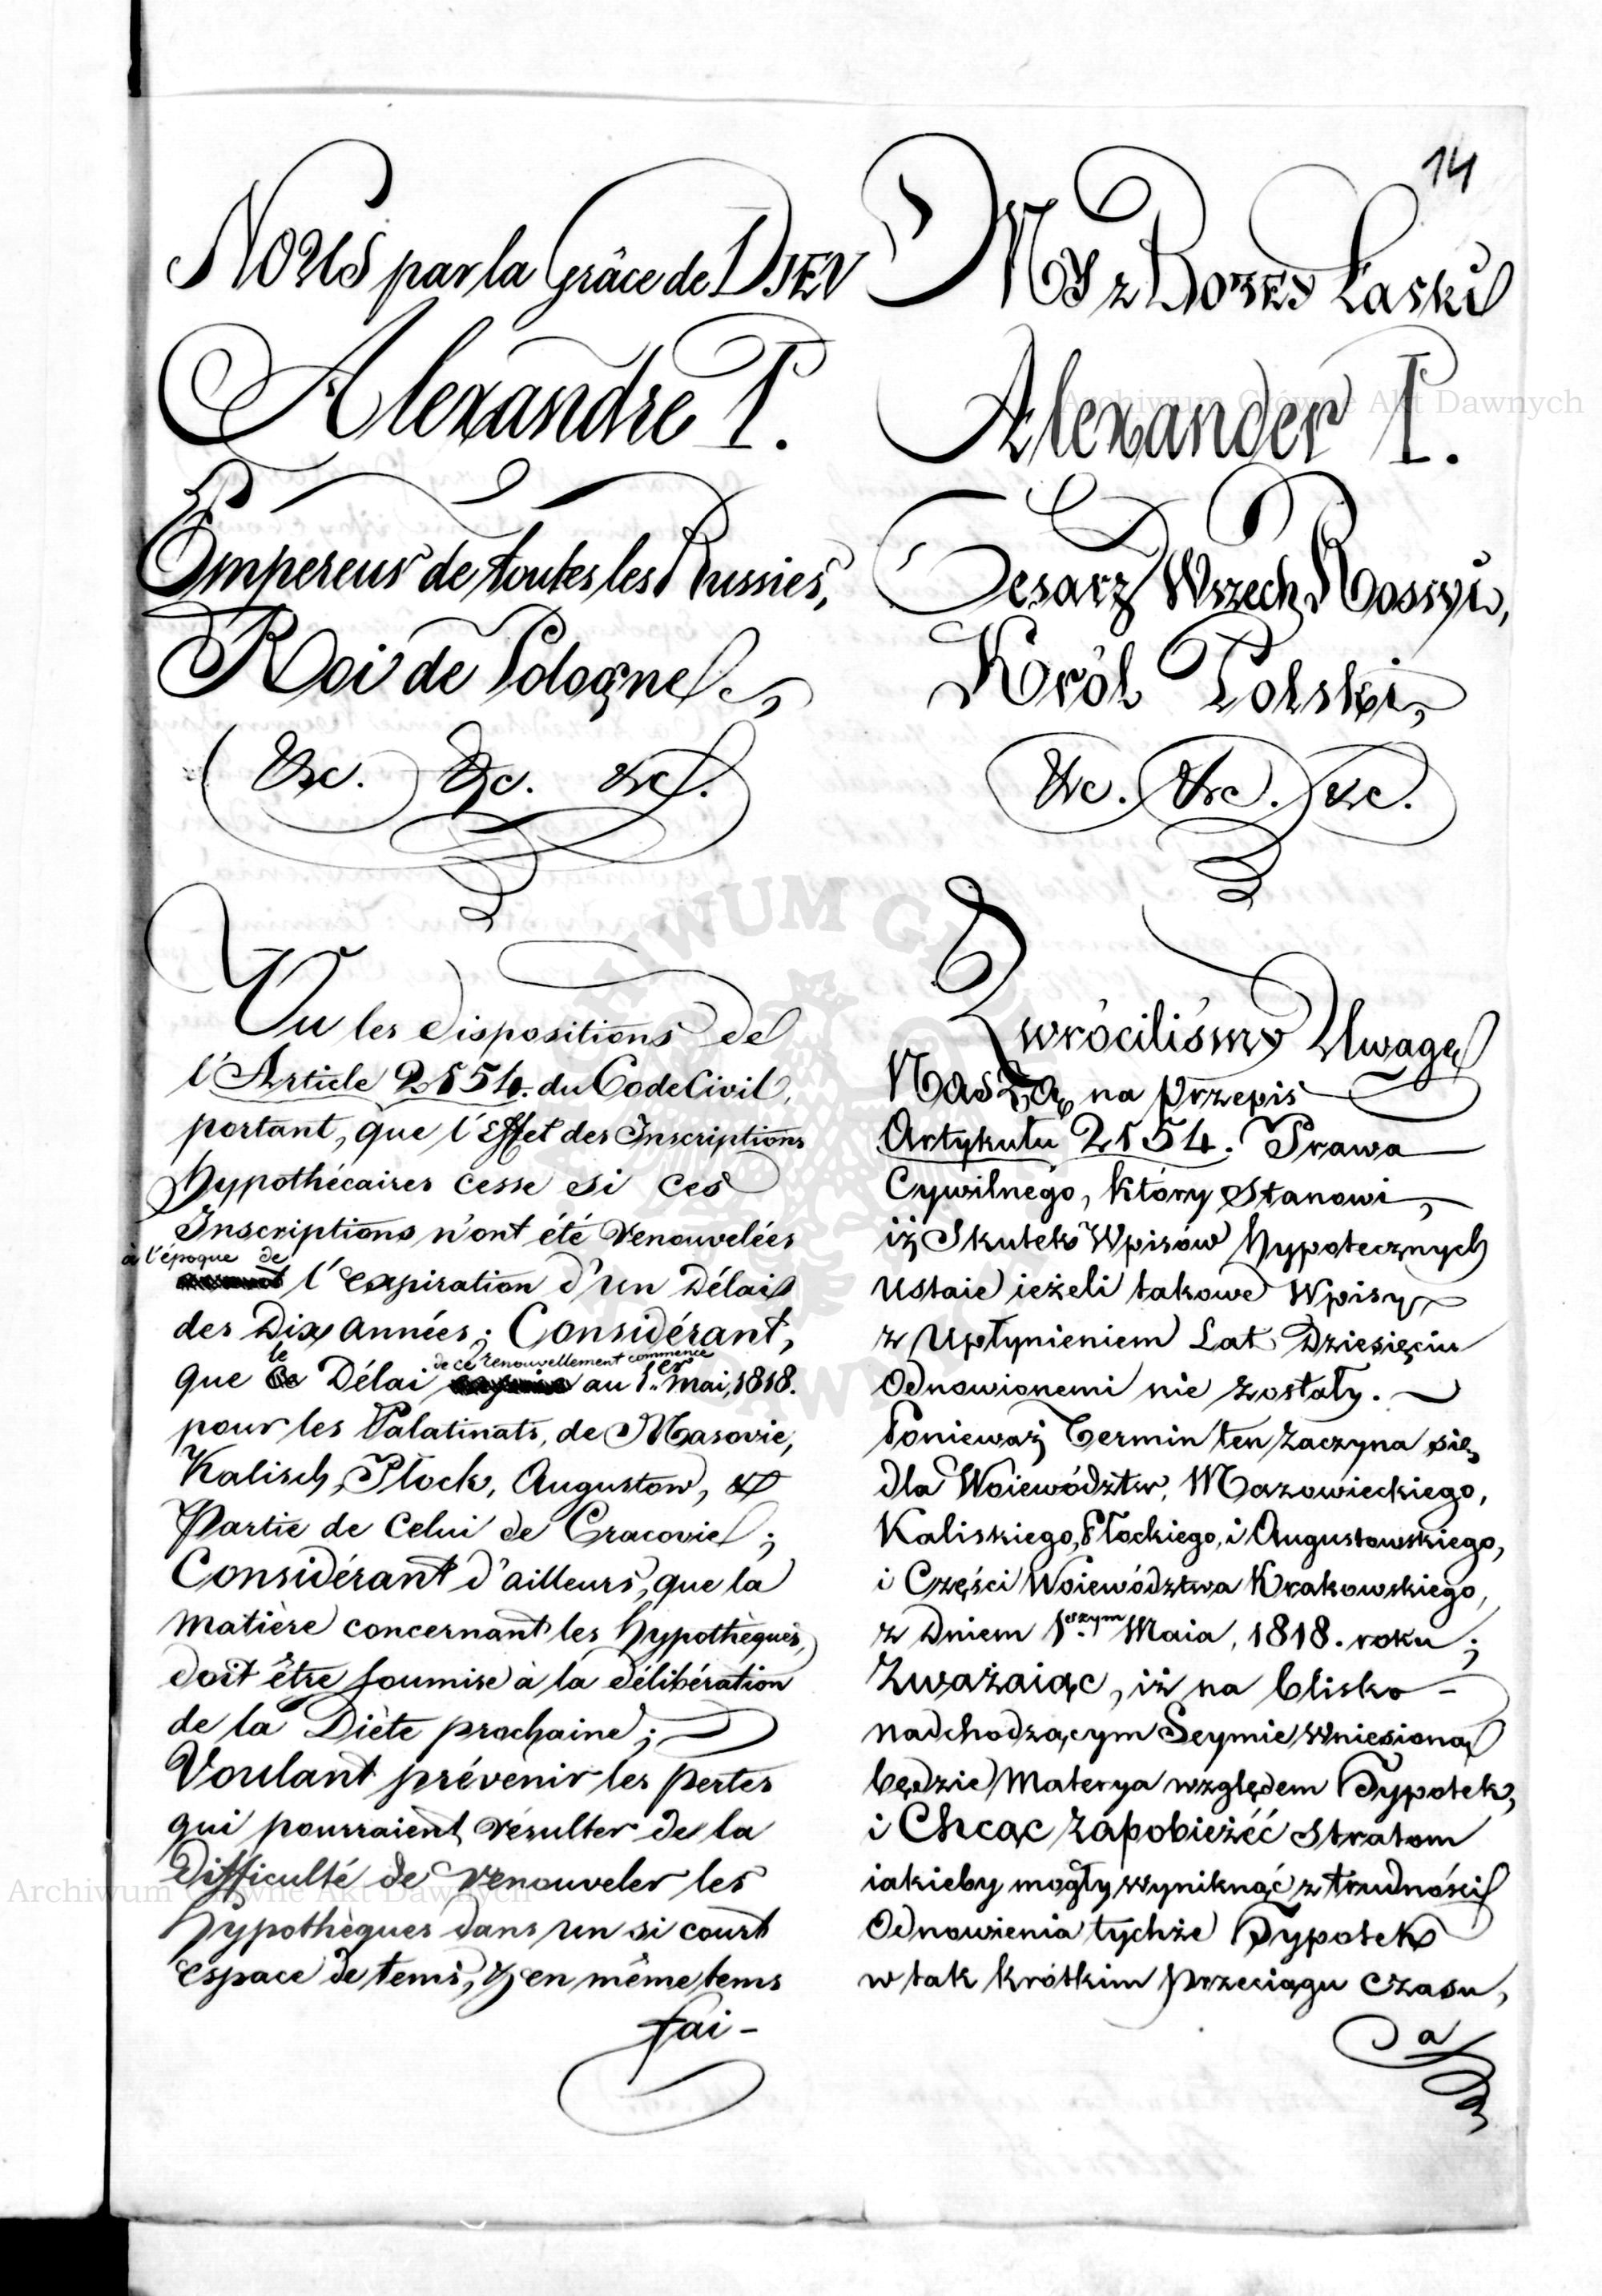 14
Nous par la Grâce de DIEU
Alexandre I.
Empereur de toutes les Russies,
Roi de Pologne,
&c. &c. &c.
Vu les dispositions de
l'Article 2154. du Code Civil,
portant, que l'Effet des Inscriptions
hypothécaires cesse si ces
Inscriptions n'ont été renouvelées
à l'époque de
l'expiration d'un Délai
des Dix années; Considérant,
le de ce renouvellement commence
que Délai au 1er Mai, 1818.
pour les Palatinats, de Masovie,
Kalisch, Płock, Augustow, &
Partie de Celui de Cracovie;
Considérant d'ailleurs, que la
Matière concernant les hypothèques,
doit être soumise à la délibération
de la Diète prochaine;
Voulant prévenir les pertes
qui pourraient résulter de la
difficulté de renouveler les
hypothèques dans un si court
espace de tems, & en même tems
fai-
My z Bożey Łaski
Alexander I.
Cesarz Wszech Rossyi,
Król Polski,
&c. &c. &c.
Zwróciliśmy Uwagę
Naszą na Przepis
Artykułu 2154. Prawa
Cywilnego, który Stanowi,
iż Skutek Wpisów hypotecznych
ustaie ieżeli takowe Wpisy
z Upłynieniem Lat Dziesięciu
Odnowionemi nie zostały.
Ponieważ Termin ten zaczyna się
dla Woiewództw, Mazowieckiego,
Kaliskiego, Płockiego, i Augustowskiego,
i Części Woiewództwa Krakowskiego,
z Dniem 1szym Maia, 1818. roku;
Zważaiąc, iż na blisko-
nadchodzącym Seymie Wniesioną
będzie Materya względem Hypotek,
i Chcąc zapobieżéć stratom
iakieby mogły wyniknąć z trudności
Odnowienia tychże Hypotek
w tak krótkim Przeciągu czasu,
a
Archiwum Główne Akt Dawnych
Archiwum Główne Akt Dawnych